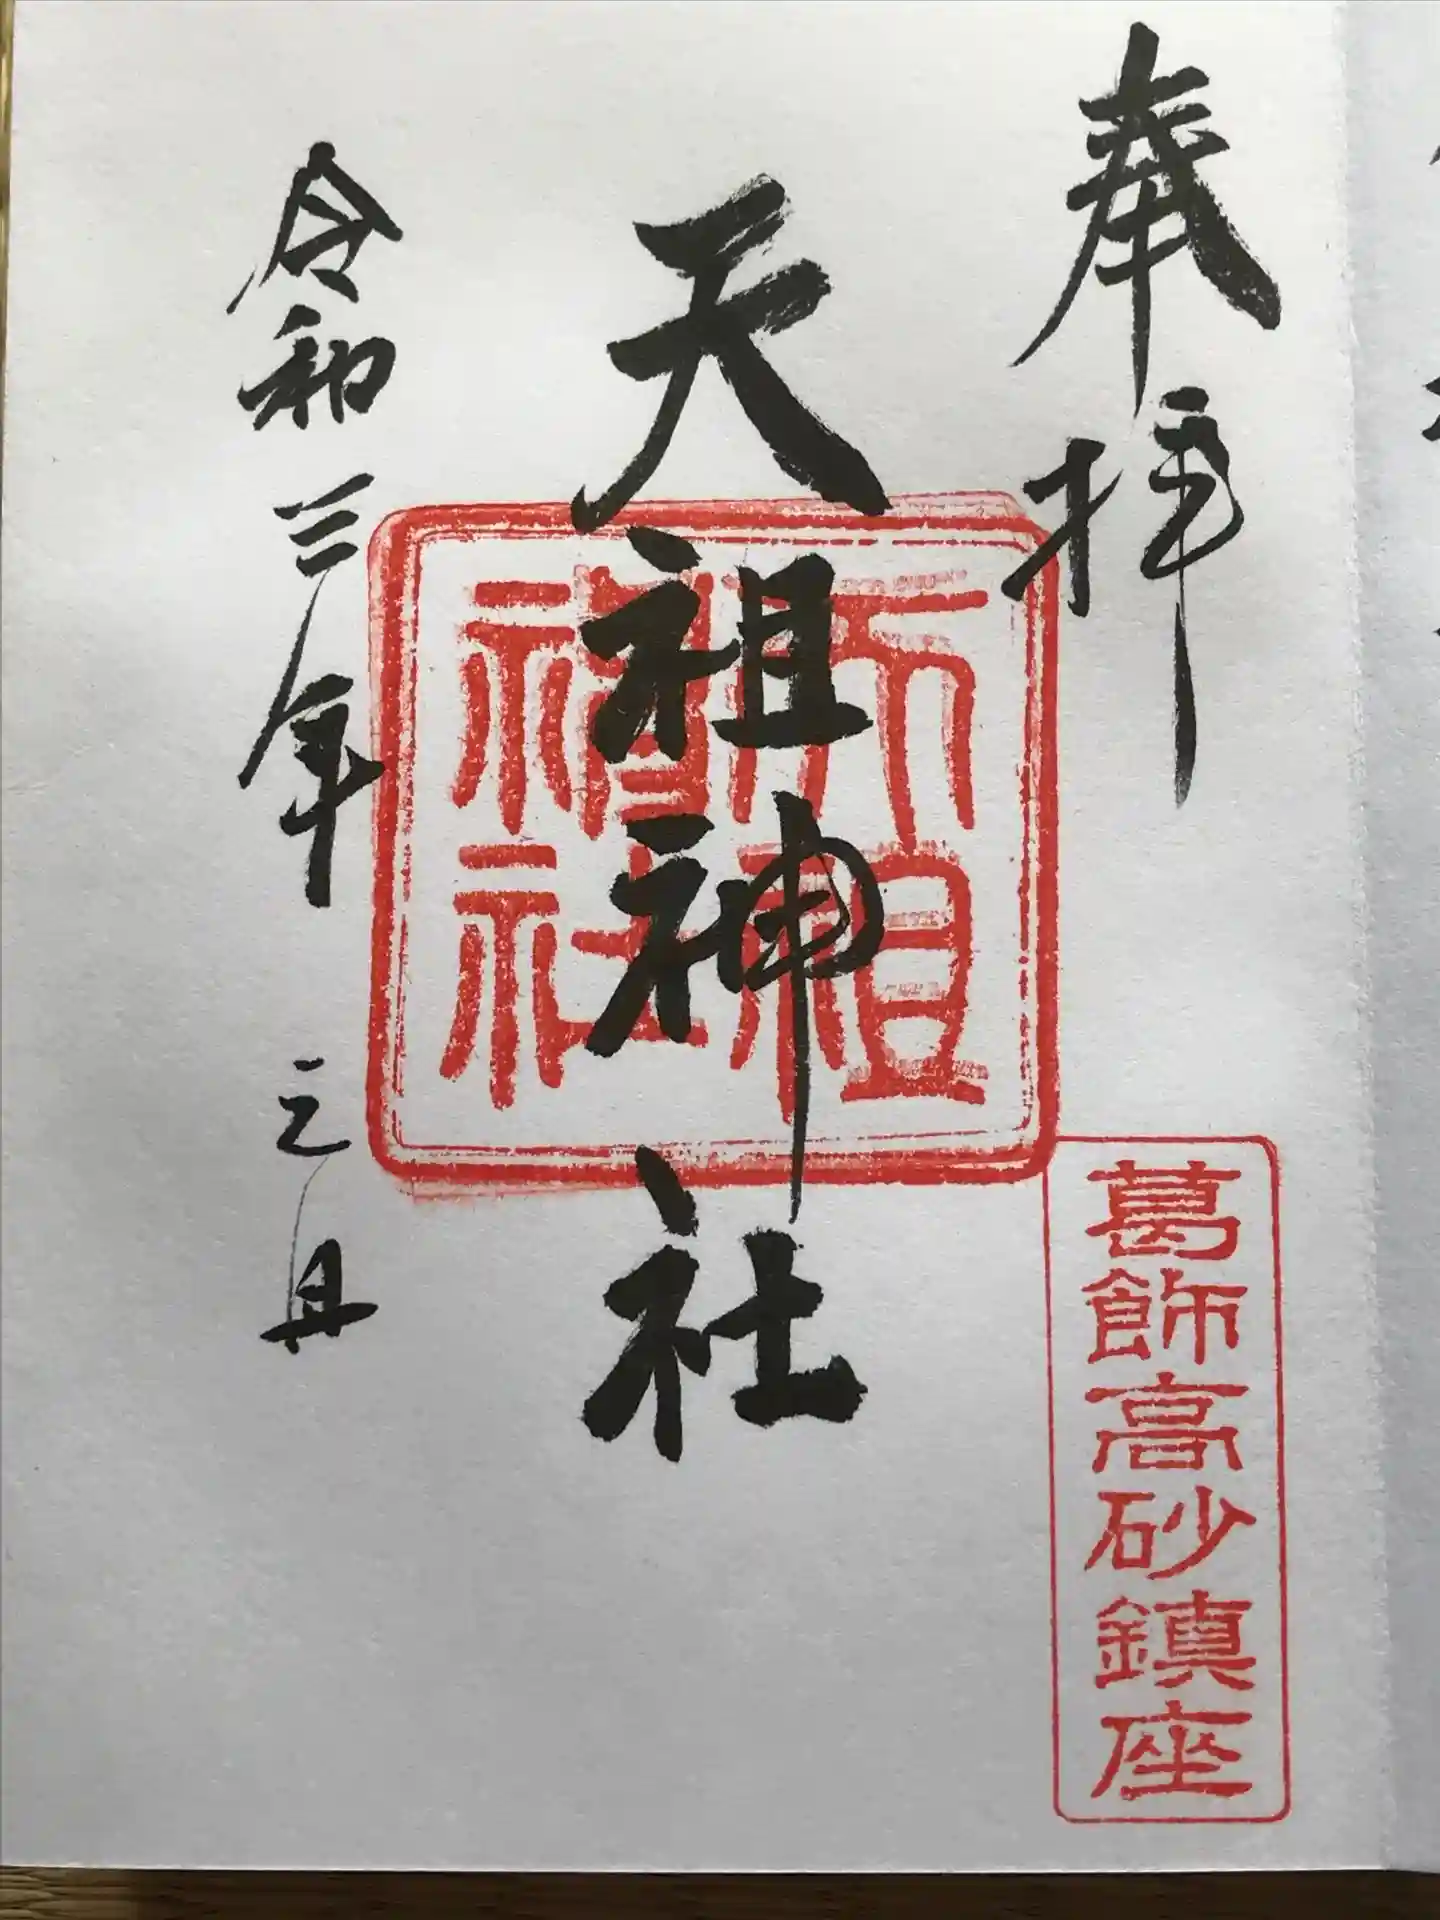 奉拝
葛飾高砂鎮座
天祖神社
天祖
神社
令和三年元旦